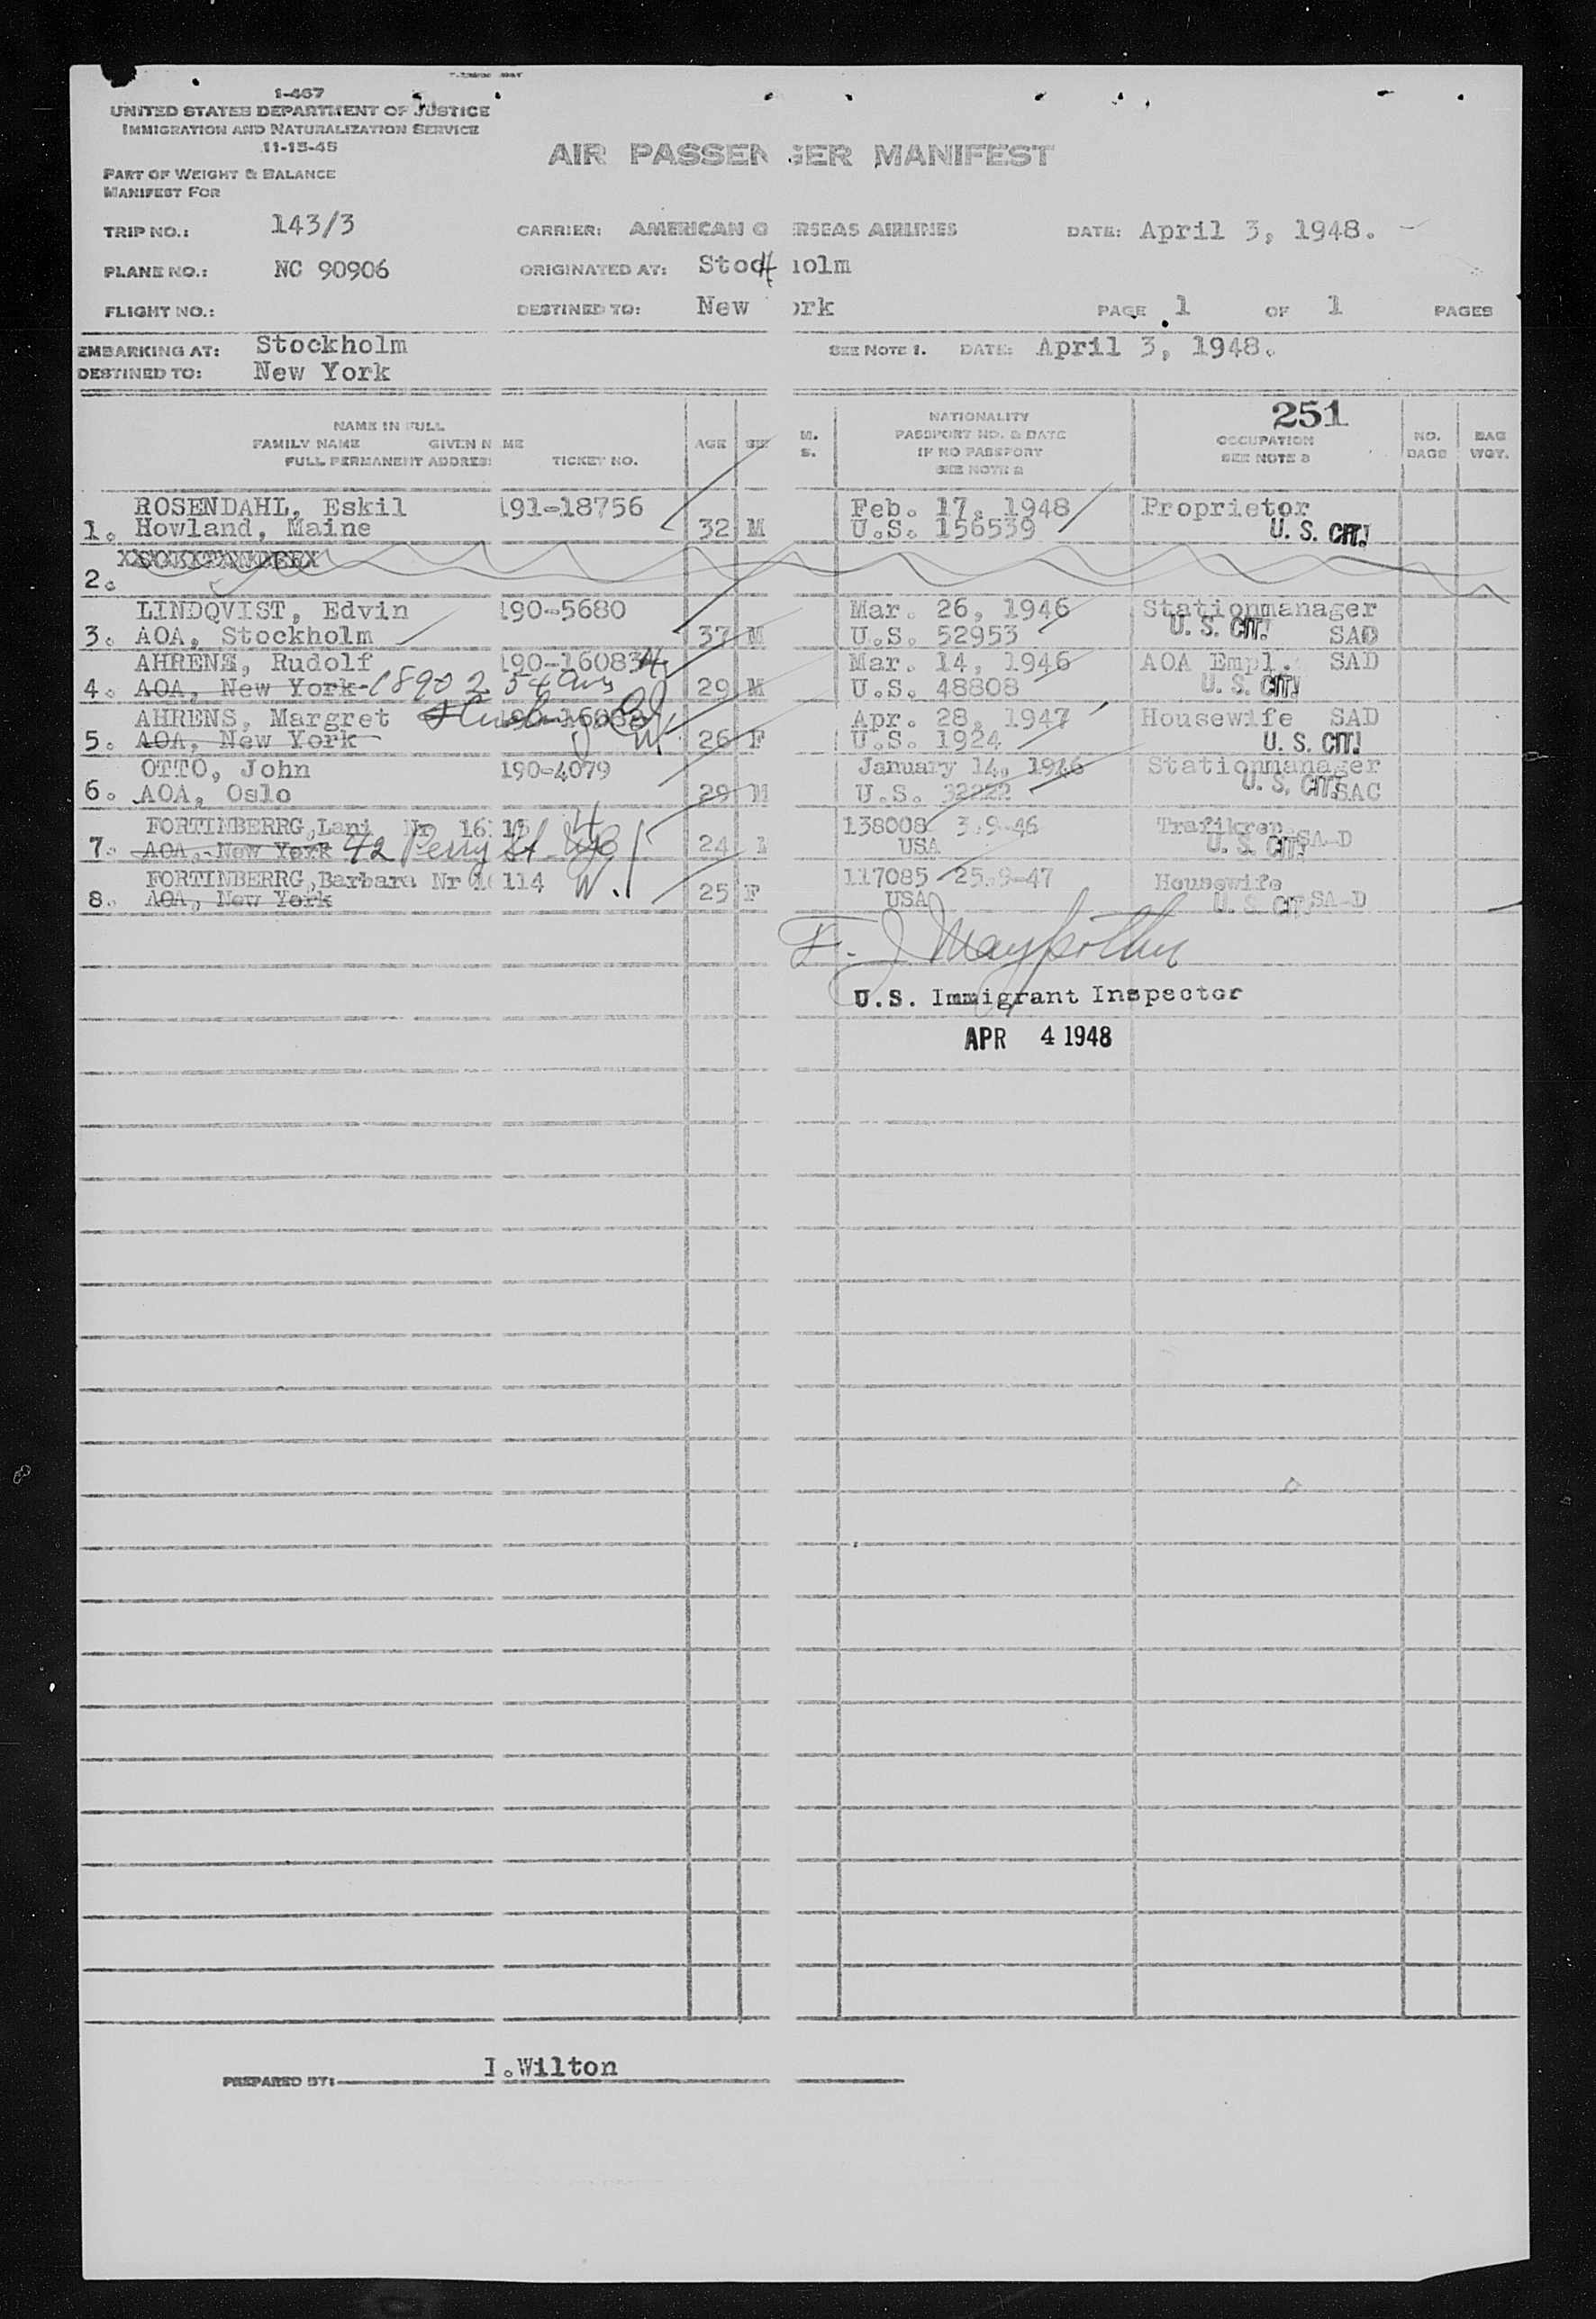 1-467
UNITED STATES DEPARTMENT OF JUSTICE
IMMIGRATION AND NATURALIZATION SERVICE
11-15-45
AIR PASSEN GER MANIFEST
PART OF WEIGHT & BALANCE
MANIFEST FOR
TRIP NO.: 143/3 CARRIER: AMERICAN O ERSEAS AIRLINES DATE: April 3, 1948.
PLANE NO.: NC 90906 ORIGINATED AT: Stock holm
FLIGHT NO.: DESTINED TO: New ork PAGE 1 OF 1 PAGES
EMBARKING AT: Stockholm SEE NOTE 1. DATE: April 3, 1948.
DESTINED TO: New York
251
NAME IN FULL
FAMILY NAME GIVEN NAME
FULL PERMANENT ADDRESS TICKET NO. AGE SEX M. S.
NATIONALITY
PASSPORT NO. & DATE
IF NO PASSPORT
SEE NOTE 2
OCCUPATION
SEE NOTE 3
NO. BAGS
BAG WGT.
ROSENDAHL, Eskil 191-18756 Feb. 17, 1948 Proprietor
1. Howland, Maine 32 M U.S. 156539 U. S. CIT.
2.
LINDQVIST, Edvin 190-5680 Mar. 26, 1946 Stationmanager
3. AOA, Stockholm 37 M U.S. 52953 U. S. CIT. SAD
AHRENS, Rudolf 190-16083 Mar. 14, 1946 AOA Empl. SAD
4. AOA, New York 18902 29 M U.S. 48808 U. S. CIT.
AHRENS, Margret Apr. 28, 1947 Housewife SAD
5. AOA, New York 26 F U.S. 1924 U. S. CIT.
OTTO, John 190-4079 January 14, 1946 Stationmanager
6. AOA, Oslo 29 M U.S. 32222 U. S. CIT. SAC
FORTINBERRG, Lani Nr 16 15 138008 3.9-46
7. AOA, New York 42 Perry St 24 USA U. S. CIT. SA-D
FORTINBERRG, Barbara Nr 16 114 117085 25.9-47 Housewife
8. AOA, New York 25 F USA U. S. CIT. SA-D
U.S. Immigrant Inspector
APR 4 1948
PREPARED BY: I.Wilton